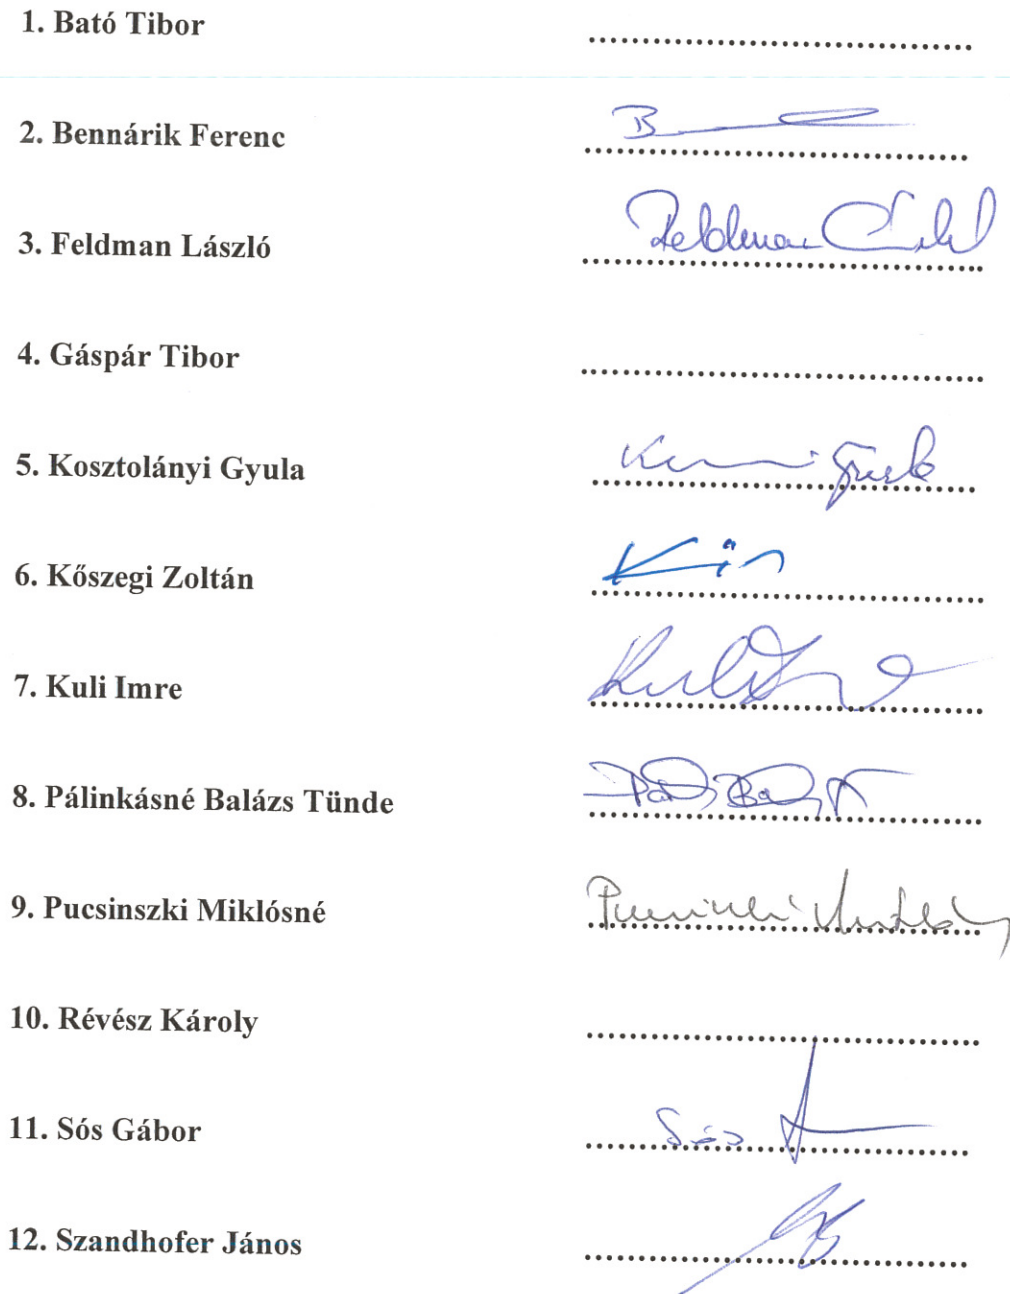 1. Bató Tibor
2. Bennárik Ferenc B
3. Feldman László Feldman
4. Gáspár Tibor
5. Kosztolányi Gyula
6. Kőszegi Zoltán
7. Kuli Imre Kuli
8. Pálinkásné Balázs Tünde
9. Pucsinszki Miklósné
10. Révész Károly
11. Sós Gábor Sós
12. Szandhofer János